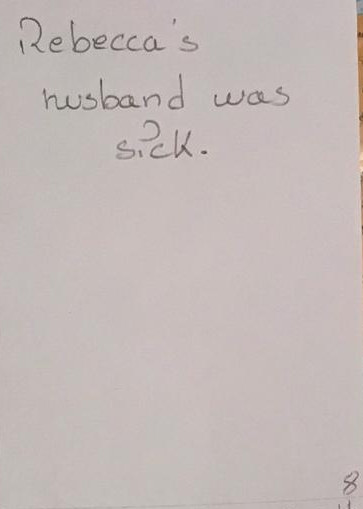 Rebecca's
husband was
sick.
8